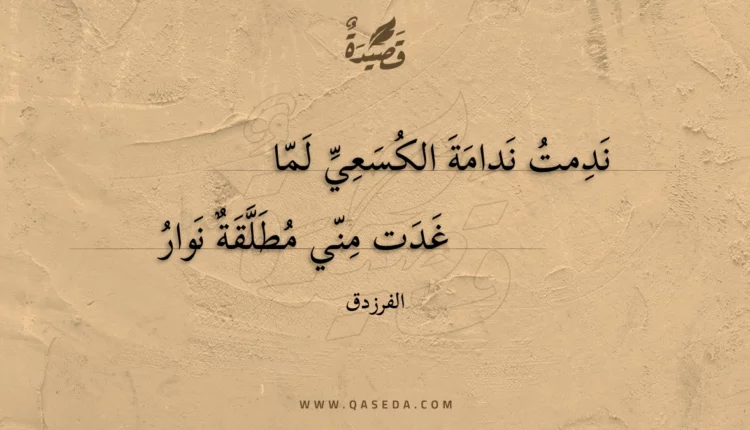 قَصِيدَةٌ
نَدِمتُ نَدامَةَ الكُسَعِيِّ لَمّا
غَدَت مِنّي مُطَلَّقَةٌ نَوارُ
الفرزدق
WWW.QASEDA.COM